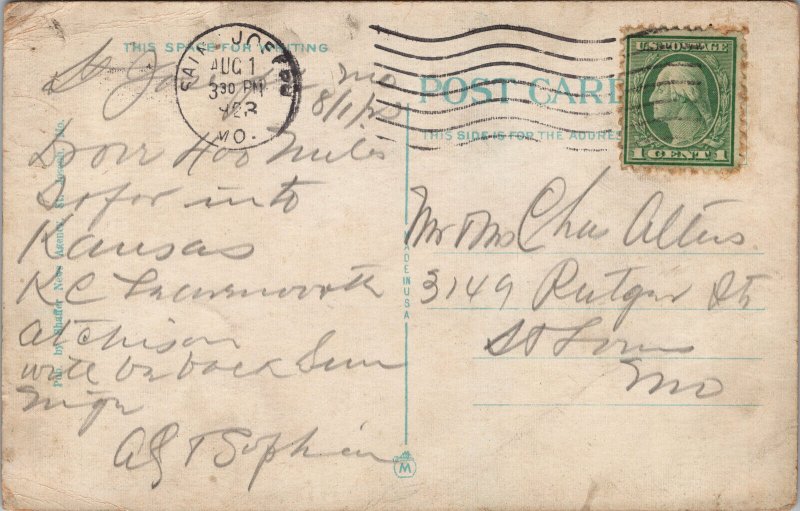 THIS SPACE FOR WRITING
SAINT JOSEPH
AUG 1
3 30 PM
MO.
U.S. POSTAGE
1 CENT 1
POST CARD
THIS SIDE IS FOR THE ADDRESS
St Joseph Mo
8/1/23
400 Miles
Sofar into
Kansas
KC Leavenworth
Atchison
will be back Sun
Night
& Sophia
Mr & Mrs Chas Alters
3149 Rutger St
St Louis
Mo
Pub. by Shaffer News Agency, St. Joseph, Mo.
MADE IN USA
M